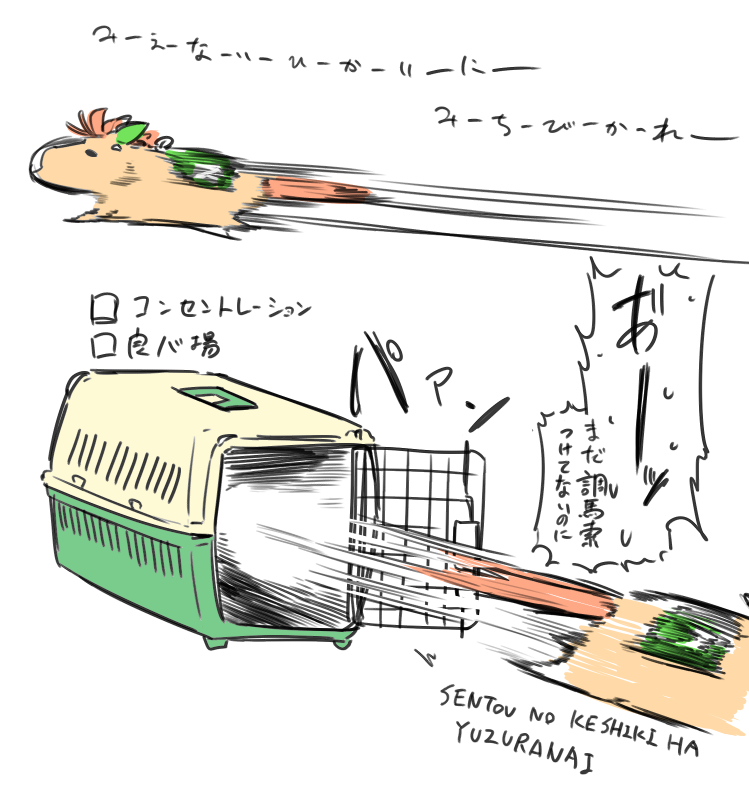 みーえーなーいーひーかーりーにー
みーちーびーかーれー
コンセントレーション
良バ場
パァン
あーッ
まだ調馬索
つけてないのに
SENTOU NO KESHIKI HA
YUZURANAI